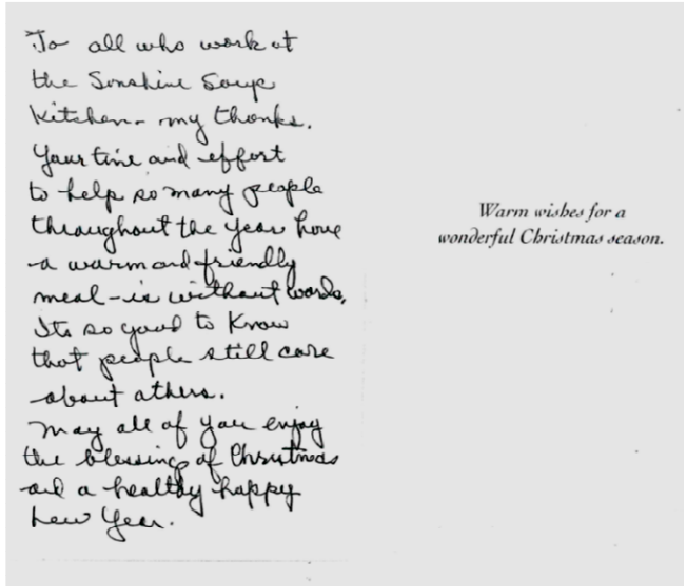 To all who work at
the Sonshine Soup
Kitchen - my thanks.
Your time and effort
to help so many people
throughout the year have
a warm and friendly
meal - is without words.
Its so good to know
that people still care
about others.
May all of you enjoy
the blessing of Christmas
and a healthy happy
New Year.
Warm wishes for a
wonderful Christmas season.